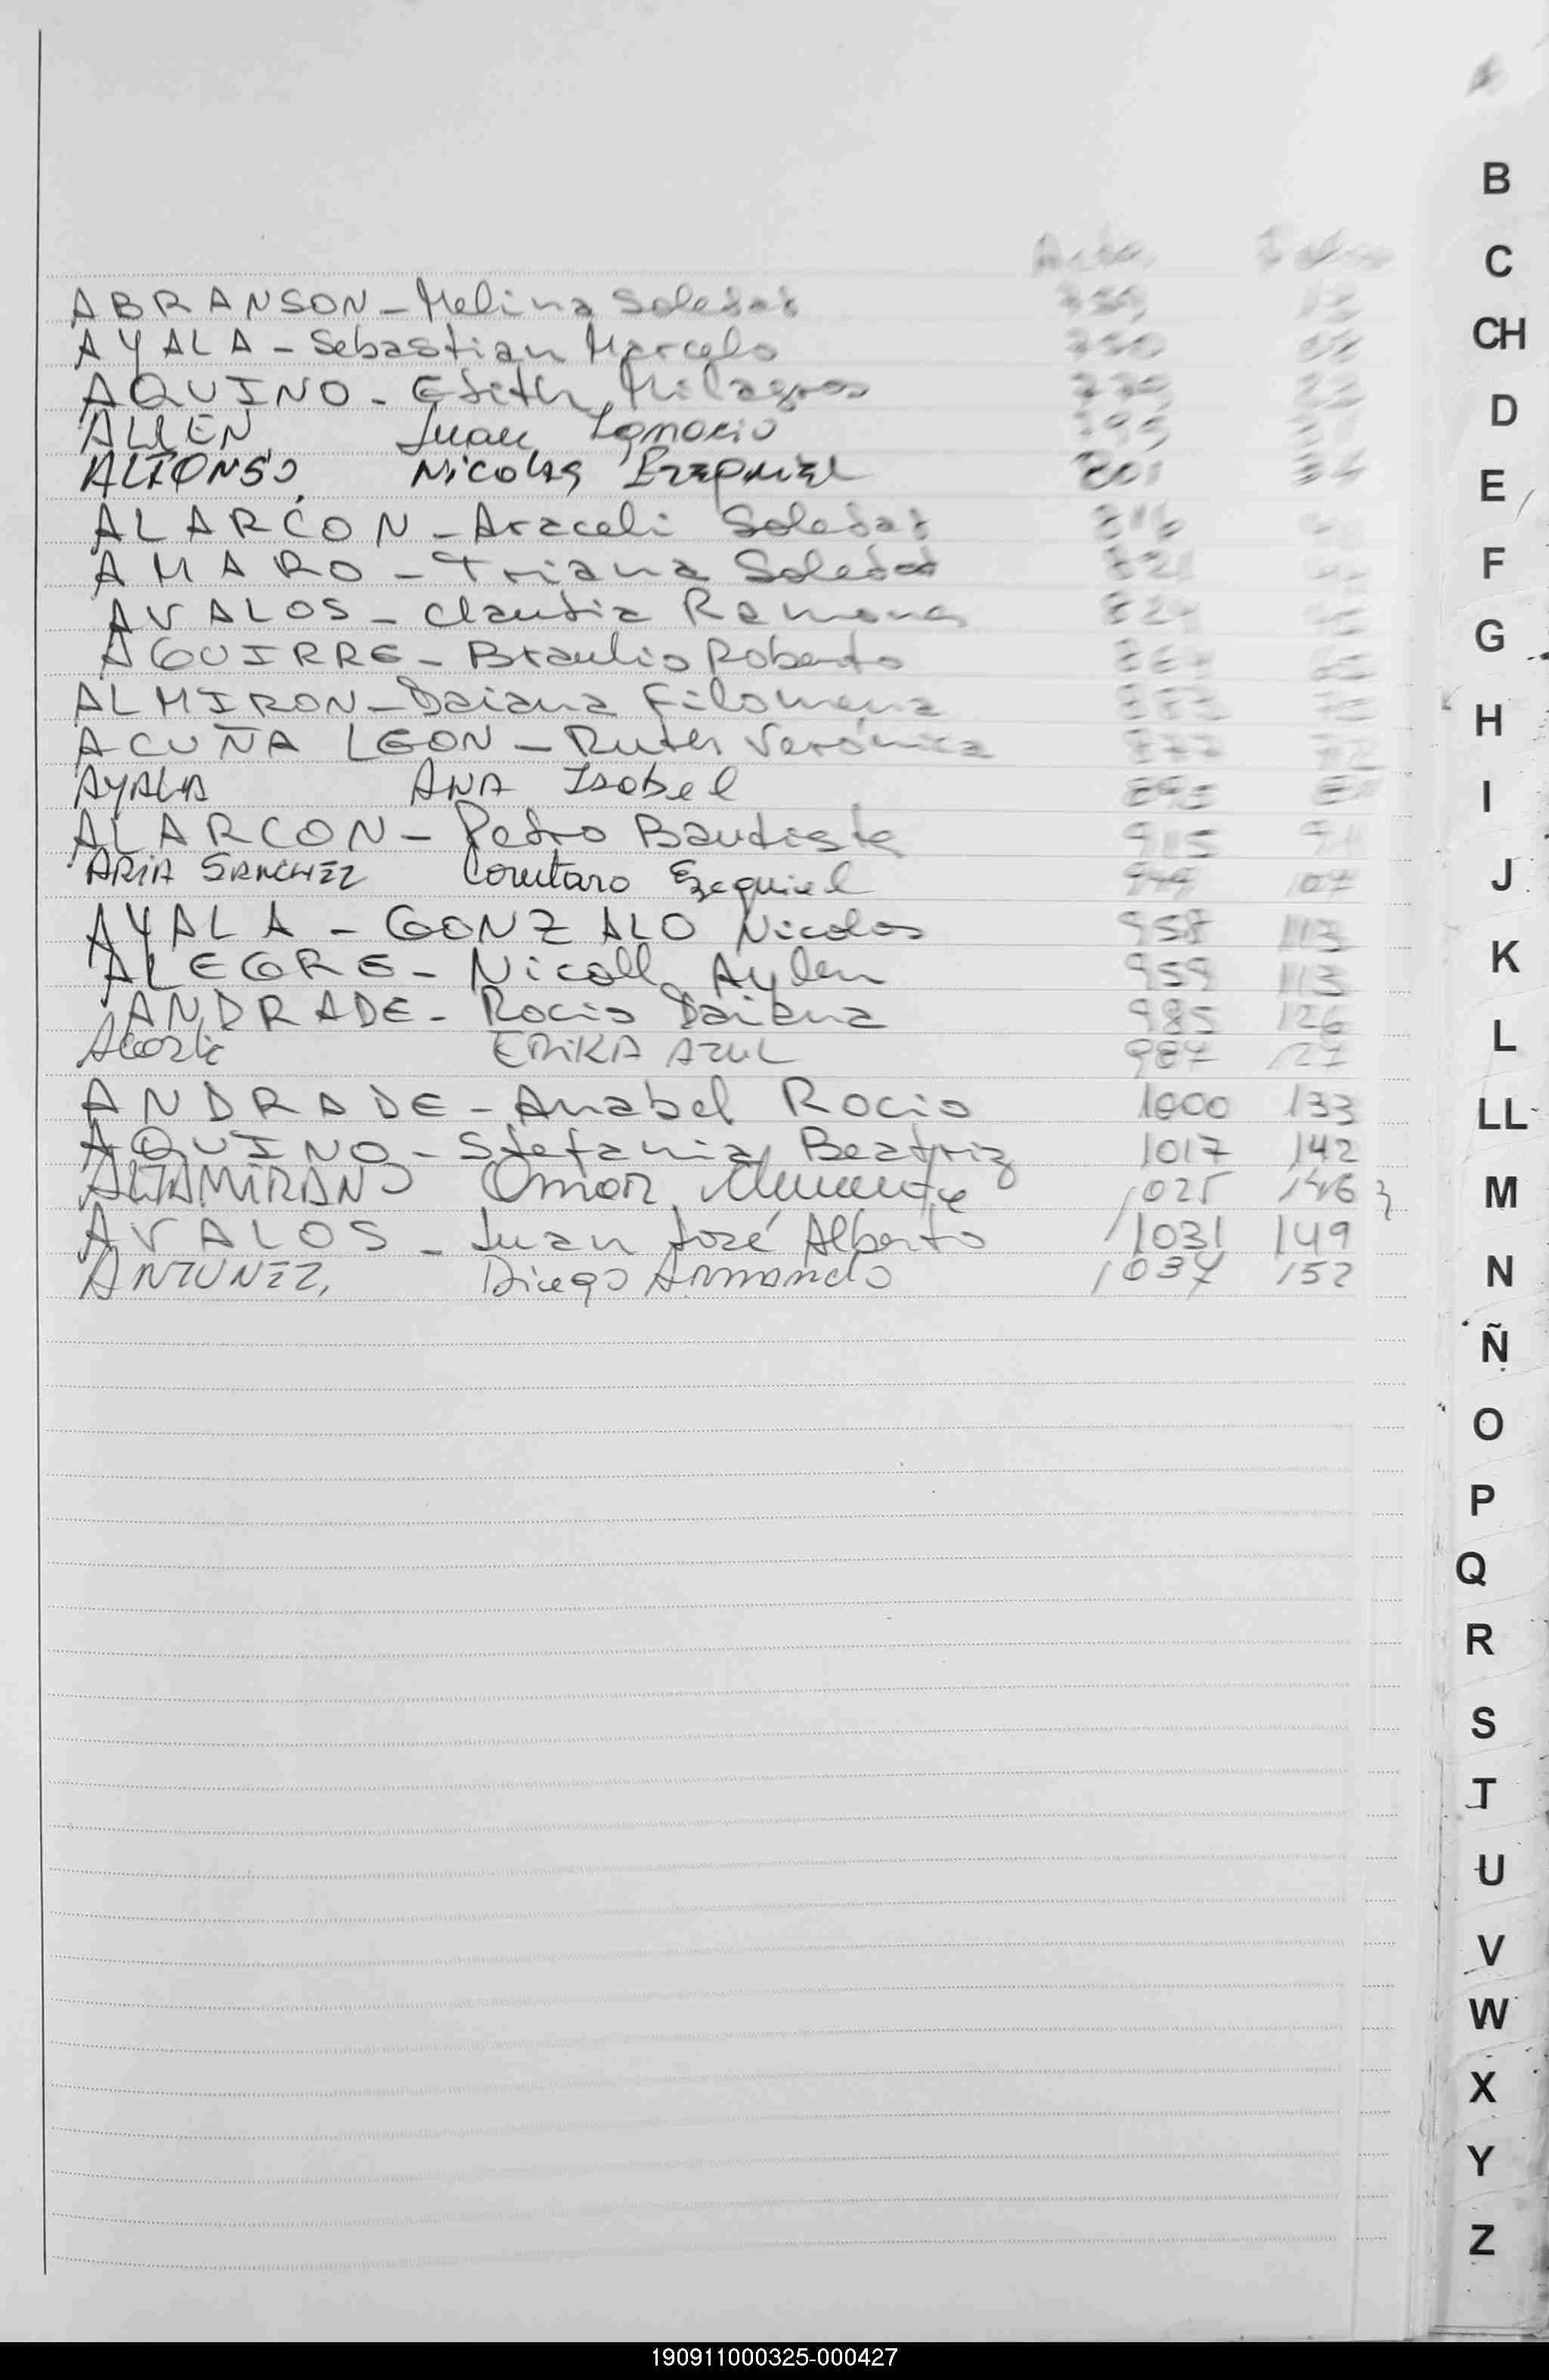 B
C
CH
D
E
F
G
H
I
J
K
L
LL
M
N
Ñ
O
P
Q
R
S
T
U
V
W
X
Y
Z
Acta
ABRANSON - Melina Soledad
AYALA - Sebastian Marcelo
AQUINO - Edith Milagros
ALLEN Juan Ignacio
ALFONSO, Nicolas Ezequiel 801 34
ALARCON - Araceli Soledad 816
AMARO - Triana Soledad 821
AVALOS - Claudia Ramona
AGUIRRE - Braulio Roberto
ALMIRON - Daiana Filomena
ACUÑA LEON - Ruth Verónica 877 72
AYALA ANA Isabel
ALARCON - Pedro Bautista 915
ARIA SANCHEZ Ezequiel 949 107
AYALA - GONZALO Nicolas 958 113
ALEGRE - Nicoll Aylen 959 113
ANDRADE - Rocio Daiana 985 126
Acosta ERIKA AZUL 987 127
ANDRADE - Anabel Rocio 1000 133
AQUINO - Stefania Beatriz 1017 142
ALTAMIRANO Omar 1025 146
AVALOS - Juan José Alberto 1031 149
ANTUNEZ, Diego Armando 1037 152
190911000325-000427